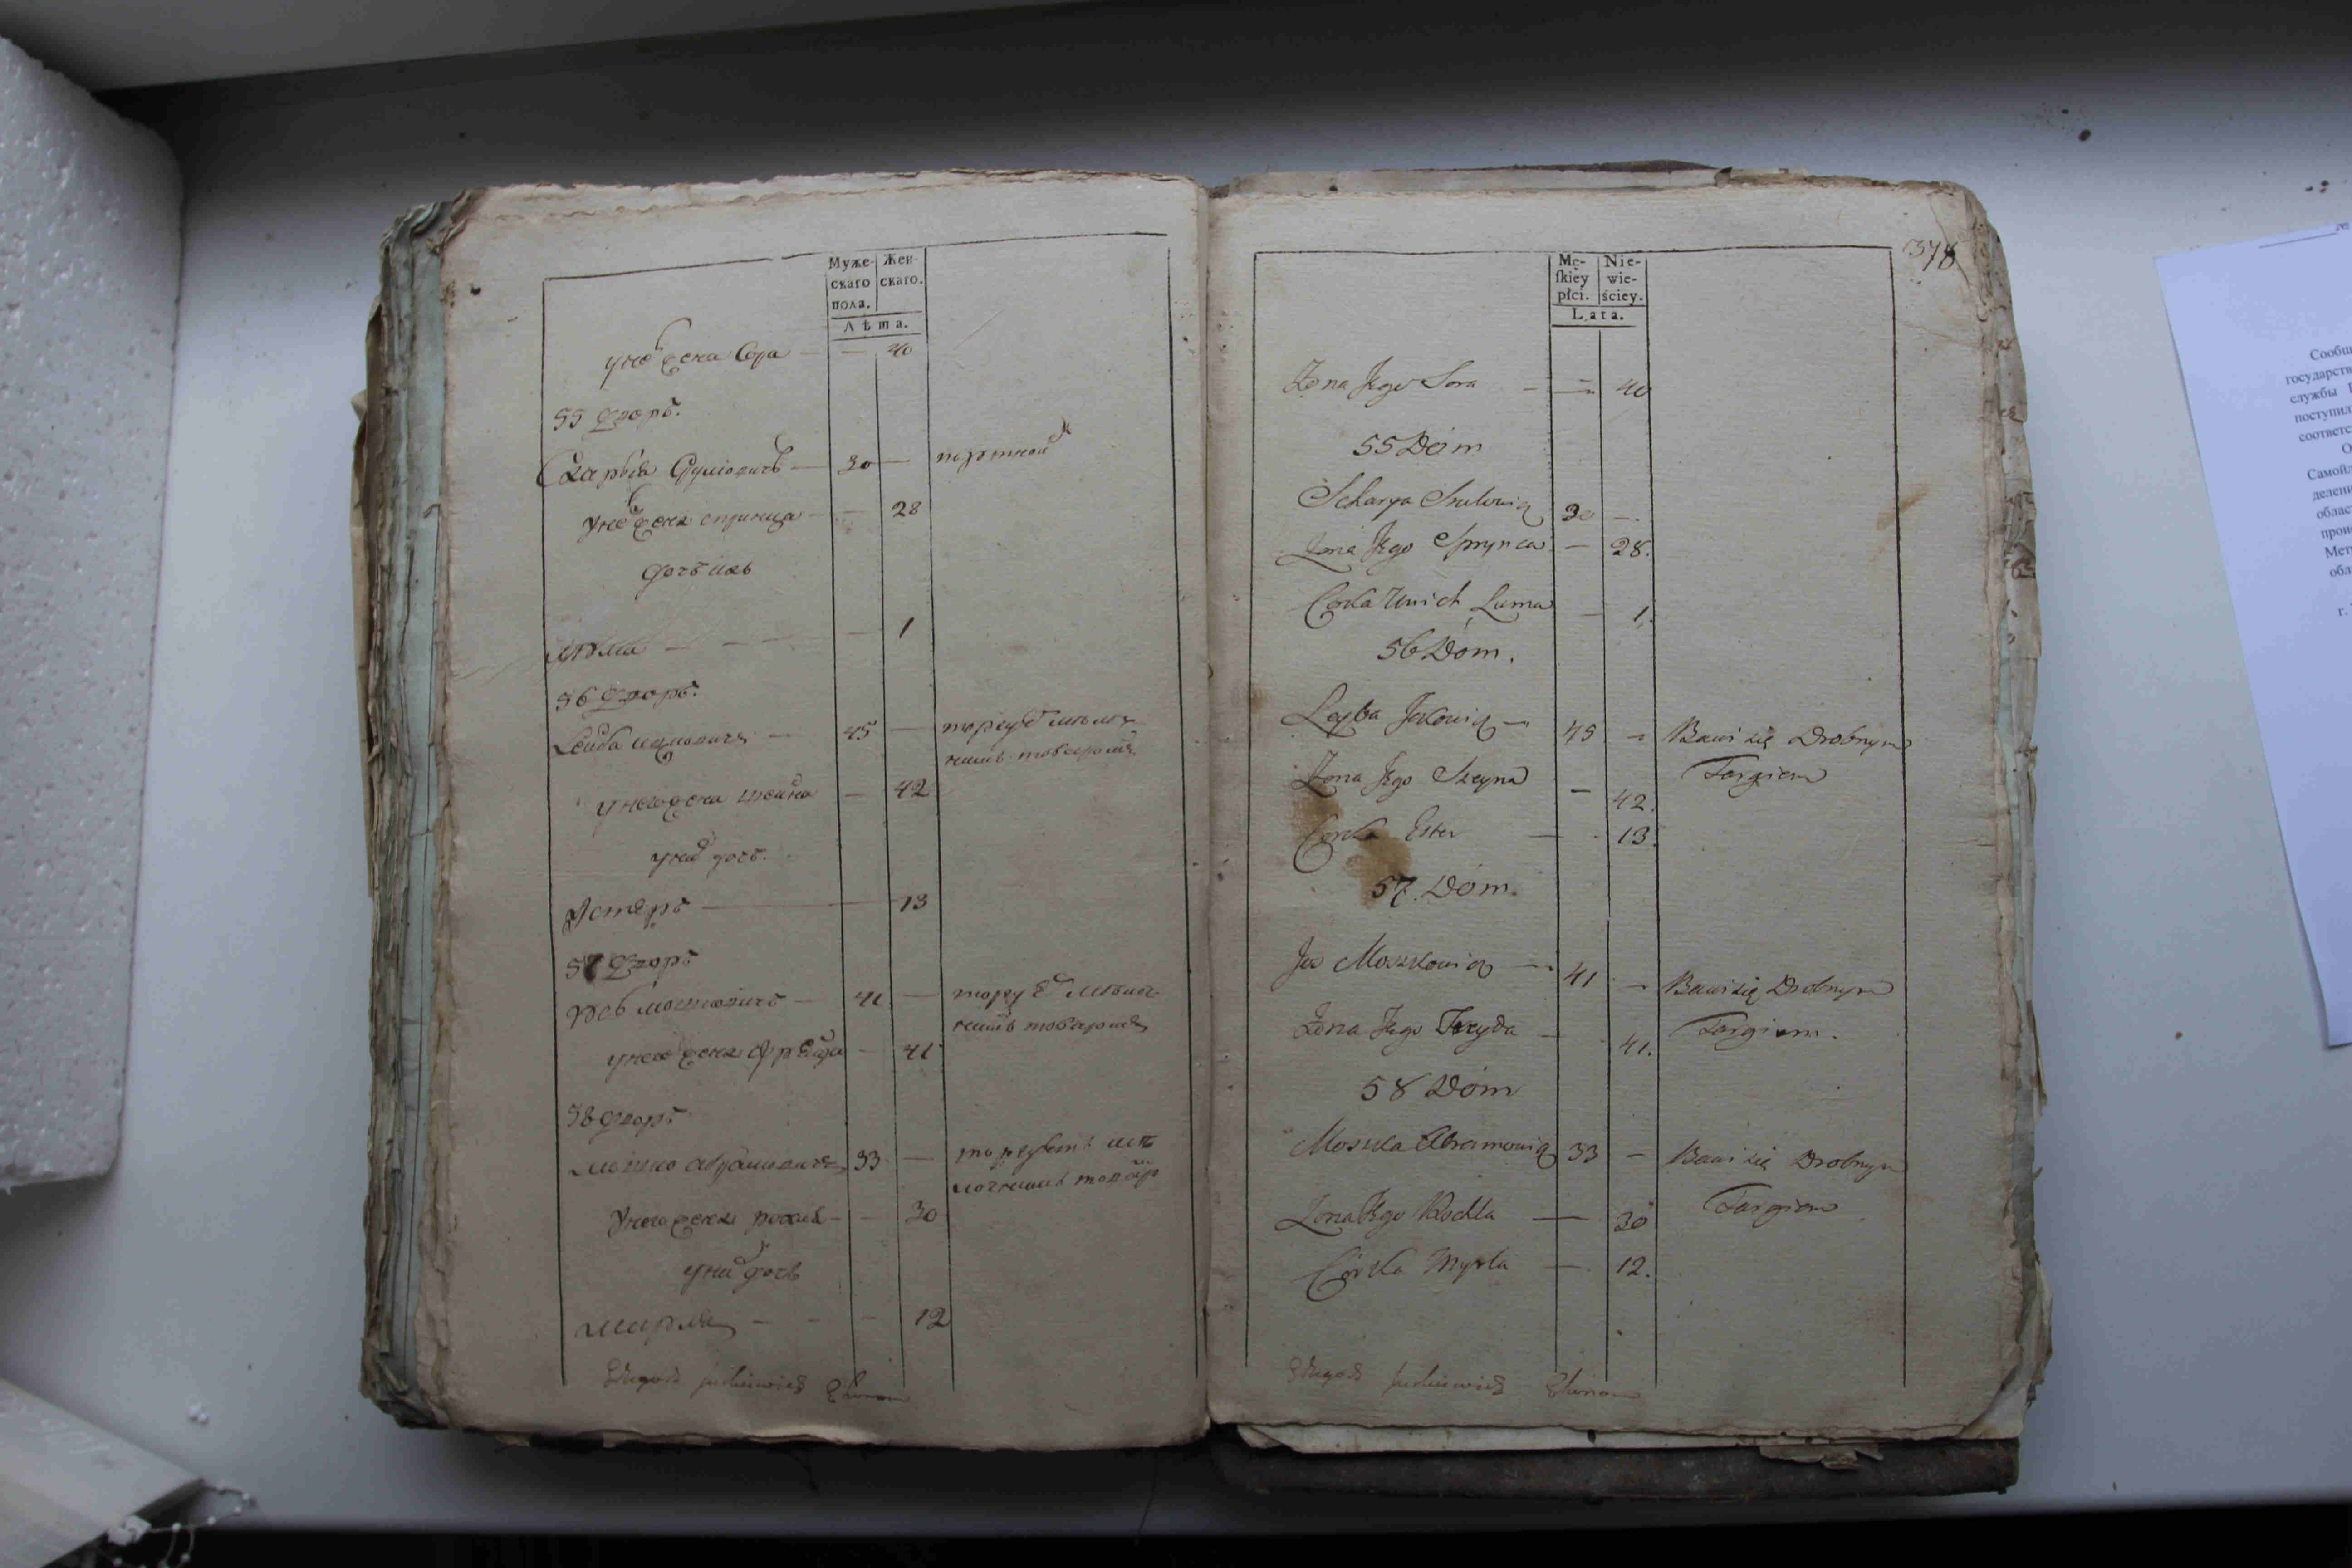 Муже-
скаго
пола.
Жен-
скаго.
Лѣта.
у него жена Сора — — 40
55 дворъ.
Схарыя Сруліовичъ — 30 — портной
у него жена спринца — — 28
дочь ихъ
люма — — — 1
56 дворъ.
Лейба ицковичъ — 45 — торгуетъ мѣлоч-
нимъ товаромъ
у него жена шейна — 42
у них дочь.
Эстеръ — 13
57 дворъ
Іось мошковичъ — 41 — торгуетъ мѣлоч-
нимъ товаромъ
у него жена фрейда — 41
58 дворъ
мошко абрамовичъ 33 — торгуетъ мѣ-
лочнимъ товар
у него жена рохля — — 30
у них дочь
мирля — — — 12
378
Mę-
ſkiey
płci.
Nie-
wie-
ściey.
Lata.
Żona Jego Sora — — 40
55 Dóm
Scharya Srulowicz 30 —
Żona Jego Sprynca — 28.
Corka Unich Luma — 1.
56 Dóm.
Leyba Jckowicz — 45 — Bawi się Drobnym
Targiem
Żona Jego Szeyna — 42.
Corka Ester — 13.
57. Dóm.
Jos Moszkowicz — 41 — Bawi się Drobnym
Targiem.
Żona Jego Freyda — 41.
58 Dóm
Moszka Abramowicz 33 — Bawi się Drobnym
Targiem
Żona Jego Rochla — 30
Córka Myrla — 12.
Сообщ
государств
службы
поступил
соответс
О
Самойл
делени
облас
прои
Мет
обл
г.